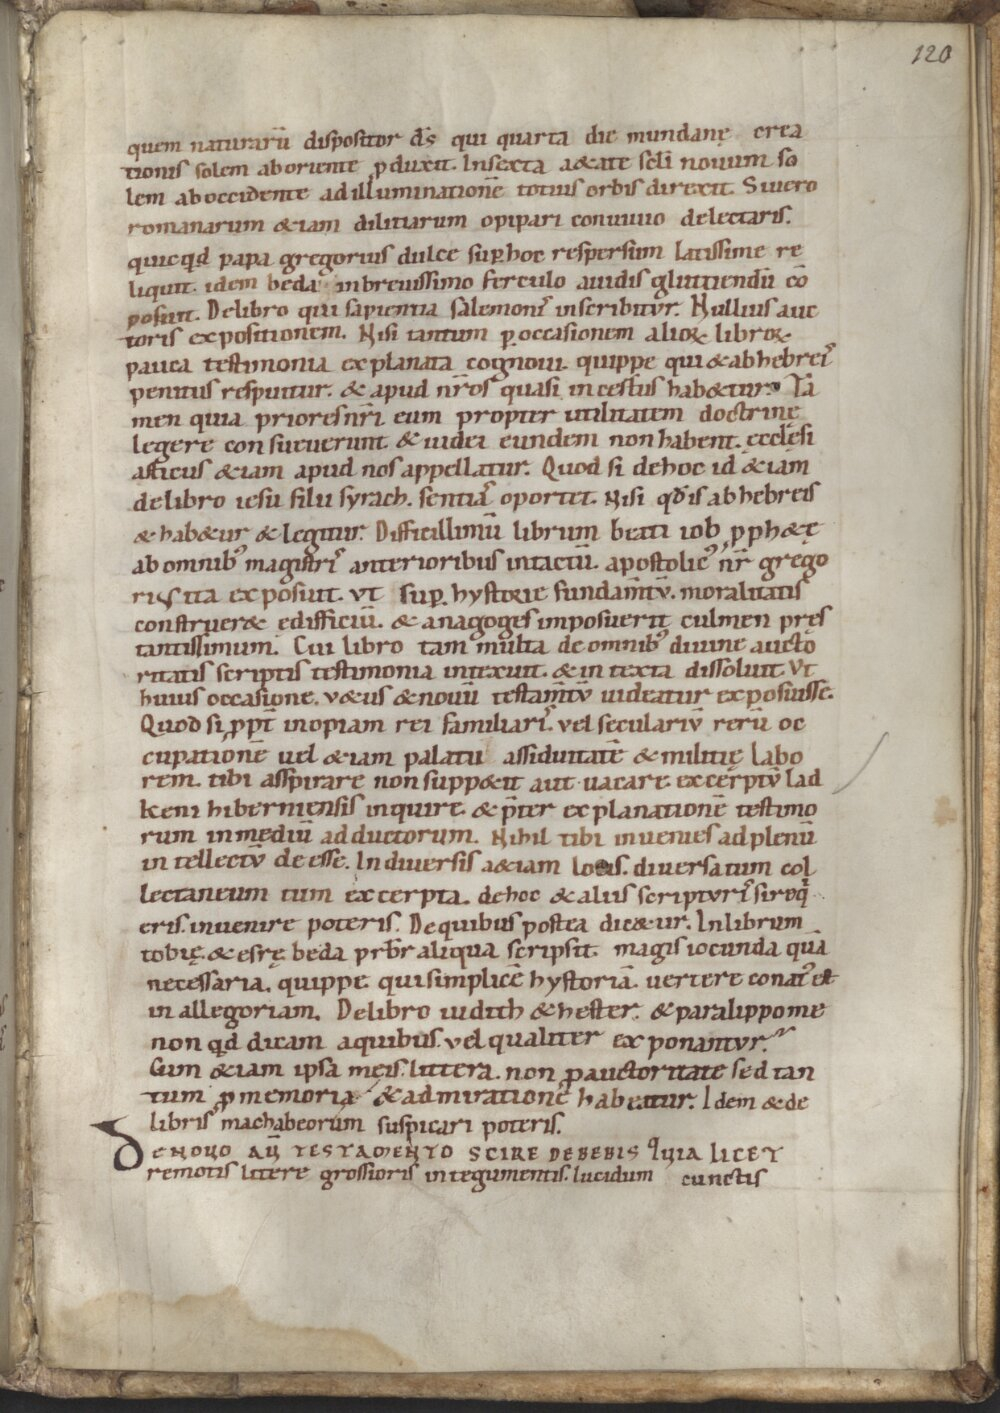 120
quem naturarū dispositor d̄s qui quarta die mundanę crea
tionis solem ab oriente ꝓduxit. In sexta a&ate sclī nouum so
lem ab occidente ad illuminationē totius orbis direxit. Si uero
romanarum &iam dilitiarum opipari conuiuio delectaris.
quicqd papa gregorius dulce suꝑ hoc respersum latissime re
liquit. idem beda in breuissimo ferculo auidis gluttiendū cō
posuit. De libro qui sapientia salemonis inscribitur. Nullius auc
toris expositionem. Nisi tantum ꝑ occasionem alioꝝ libroꝝ
pauca testimonia explanata cognoui. quippe qui & ab hebreis
penitus respuitur. & apud nr̄os quasi incestus hab&ur. Ta
men quia priores nr̄i eum propter utilitatem doctrinę
legere consueuerunt. & iudei eundem non habent. ęcclęsi
asticus &iam apud nos appellatur. Quod si de hoc id &iam
de libro iesu filii syrach. sentias oportet. Nisi qd is ab hebreis
& hab&ur & legitur. Difficillimū librum beati iob ꝓph&ę
ab omnibꝰ magistris anterioribus intactū. apostolicꝰ nr̄ grego
rius ita exposuit. ut suꝑ hystorie fundam̄tū. moralitatis
construer& ędifficiū. & anagoges imposuerit culmen pręs
tantissimum. Cui libro tam multa de omnibꝰ diuine aucto
ritatis scriptis testimonia intexuit. & intexta dissoluit. Ut
huius occasione. u&us & nouū testam̄tū uideatur exposuisse.
Quod si ꝓpt̄ inopiam rei familiaris. vel seculariū rerū oc
cupationē uel &iam palatii assiduitatē & militię labo
rem. tibi asspirare non supp&it aut uacare. excerptū lad
keni hiberniensis inquire. & p̄ter explanationē testimo
rum in mediū adductorum. Nihil tibi inuenies ad plenū
intellectū deesse. In diuersis a&iam locis. diuersa tum col
lectaneum tum excerpta. de hoc & aliis scripturis si req̄
eris. inuenire poteris. De quibus postea dic&ur. In librum
tobię. & esrę beda prb̄r aliqua scripsit. magis iocunda quā
necessaria. quippe qui simplicē hystoriā. uertere conatꝰ est
in allegoriam. De libro iudith & hester. & paralippome
non qd dicam a quibus. vel qualiter exponantur.
Cum &iam ipsa męis. littera. non ꝓ auctoritate sed tan
tum ꝓ memoria & admirationē habeatur. Idem & de
libris machabeorum suspicari poteris.
DE NOUO AŪ TESTAMENTO SCIRE DEBEBIS quia licet
remotis litere grossioris integumentis. lucidum cunctis